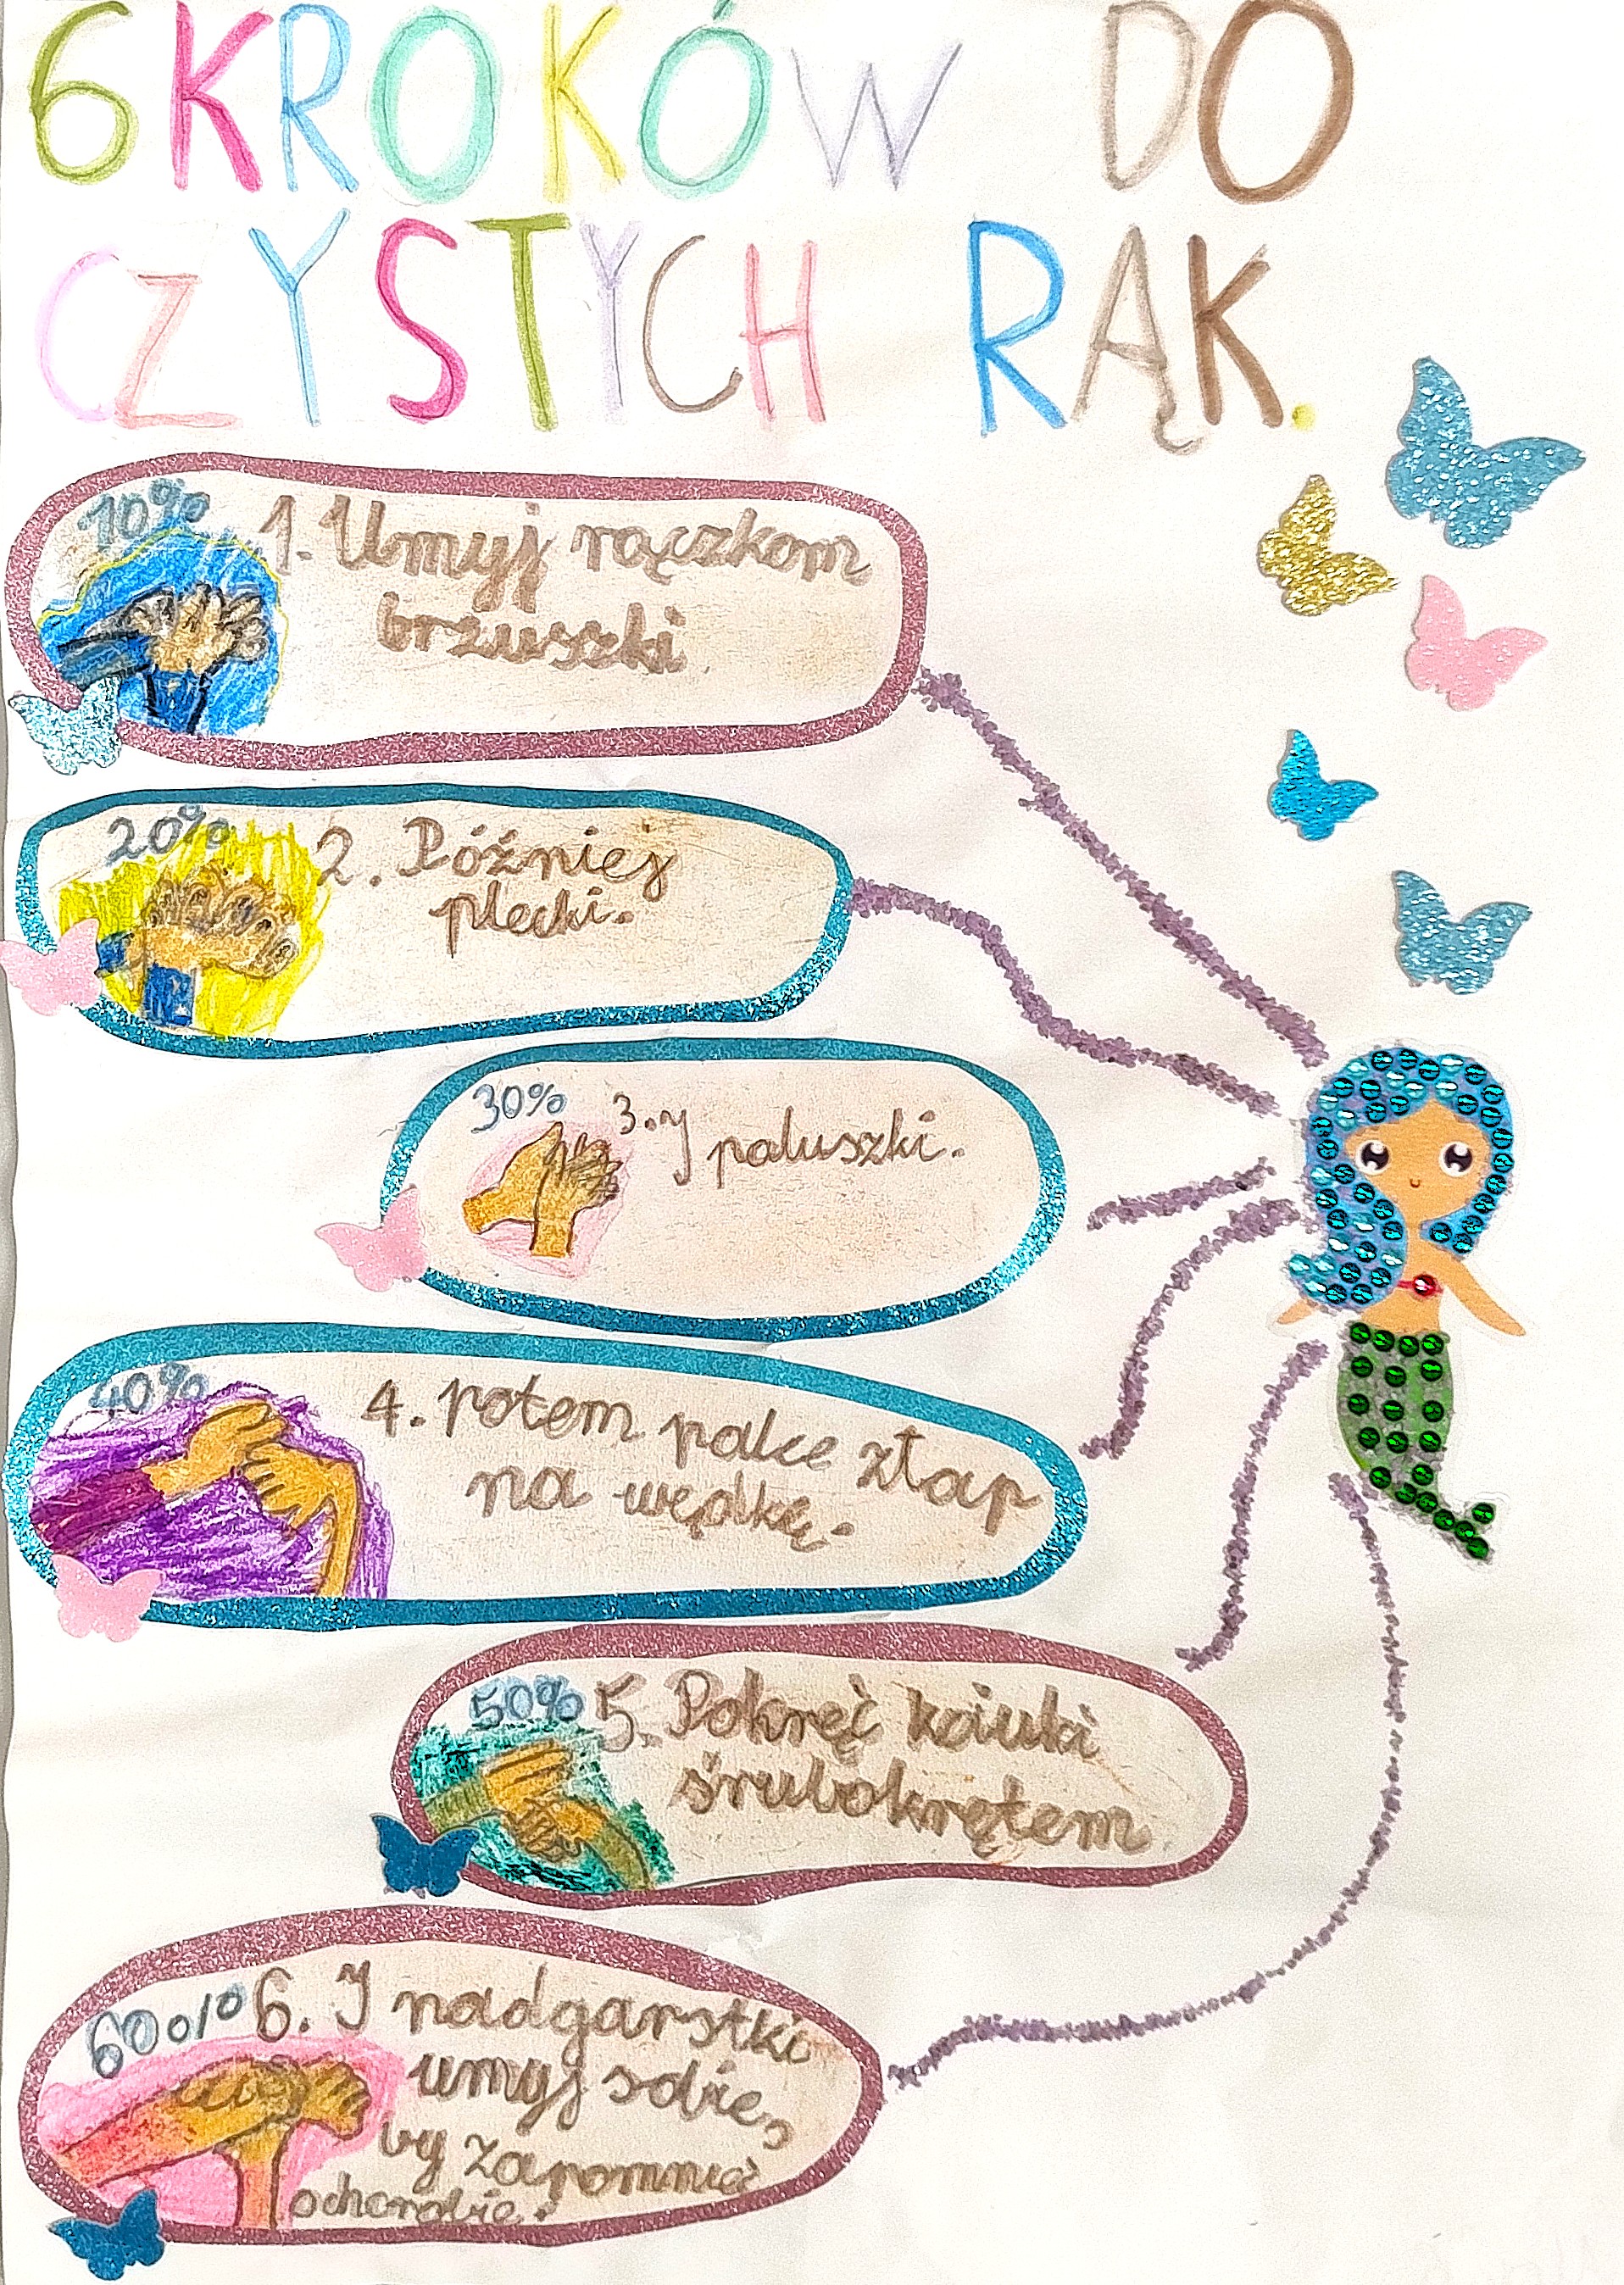 6 KROKÓW DO
CZYSTYCH RĄK.
10%
1. Umyj rączkom
brzuszki
20%
2. Później
plecki.
30%
3. I paluszki.
40%
4. potem palce złap
na wędki
50%
5. Pokręć kciuki
śrubokrętem
60%
6. I nadgarstki
umyj sobie,
by zapomnieć
ochorobie.